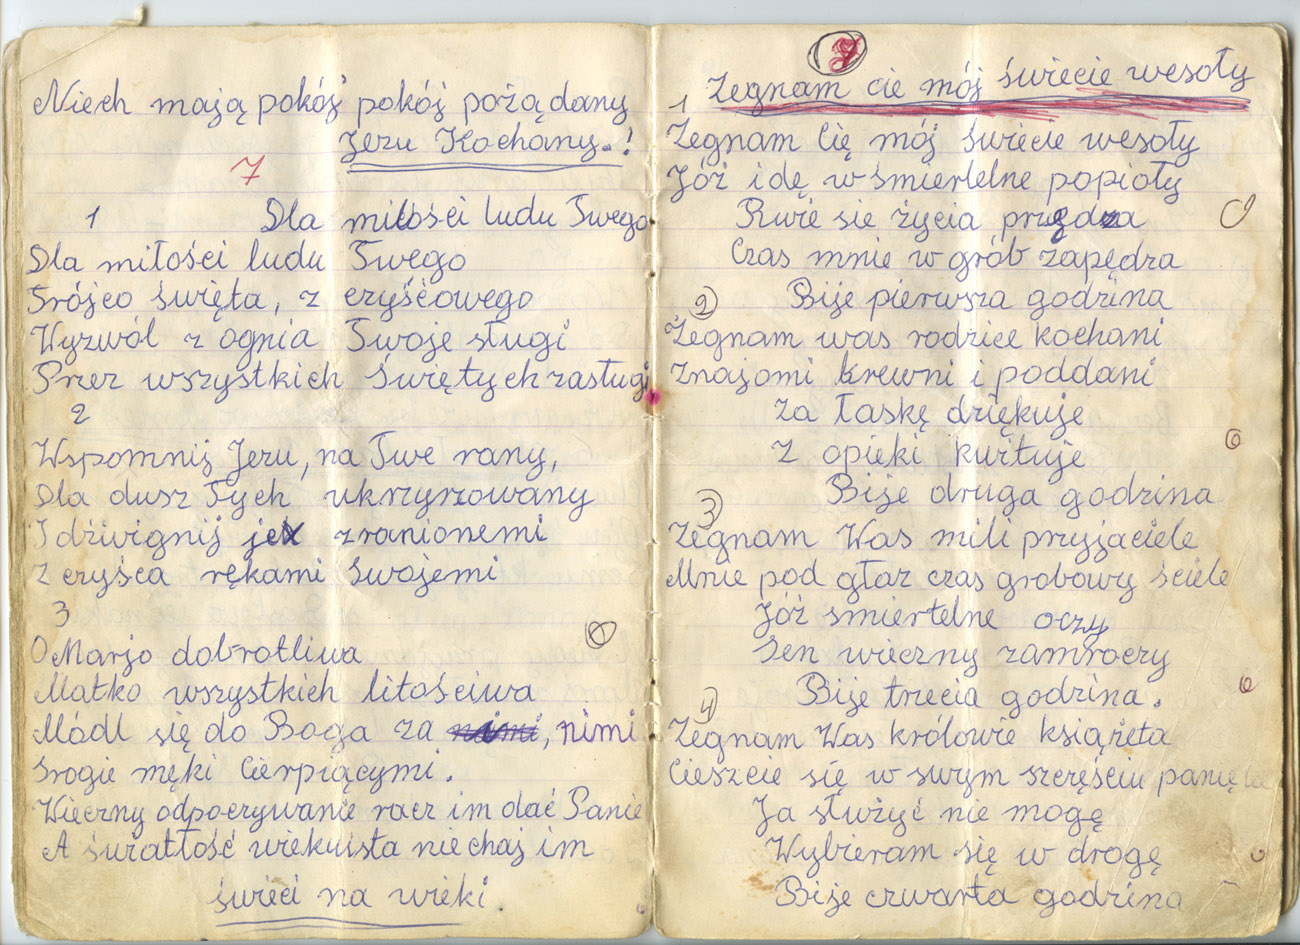 Niech mają pokój pokój pożądany
Jezu Kochany.!
7
1 Dla miłości ludu Twego
Dla miłości ludu Twego
Trójco święta, z czyśćowego
Wyzwól z ognia Twoje sługi
Przez wszystkich Świętych zasługi
2
Wspomnij Jezu, na Twe rany,
Dla dusz Tych ukrzyżowany
I dźwignij je zranionemi
Z czyśca rękami Swojemi
3
O Marjo dobrotliwa
Matko wszystkich litościwa
Módl się do Boga za nimi, nimi
Srogie męki Cierpiącymi.
Wieczny odpoczywanie racz im dać Panie
A światłość wiekuista niechaj im
świeci na wieki.
Żegnam cie mój świecie wesoły
1
Żegnam Cię mój Świecie wesoły
Jóż idę w śmiertelne popioły
Rwie sie życia przędza
Czas mnie w grób zapędza
Bije pierwsza godzina
2
Żegnam was rodzice kochani
Znajomi krewni i poddani
Za łaskę dziękuje
Z opieki kwituje
Bije druga godzina
3
Żegnam Was mili przyjaciele
Mnie pod głaz czas grobowy ściele
Jóż śmiertelne oczy
Sen wieczny zamroczy
Bije trzecia godzina.
4
Żegnam Was królowie książęta
Cieszcie się w swym szczęściu panięta
Ja służyć nie mogę
Wybieram się w drogę
Bije czwarta godzina